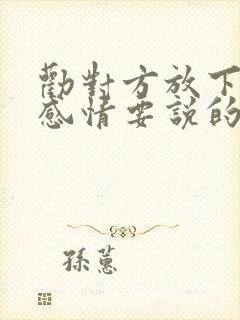 勸對方放下
感情要說的
孫蕙